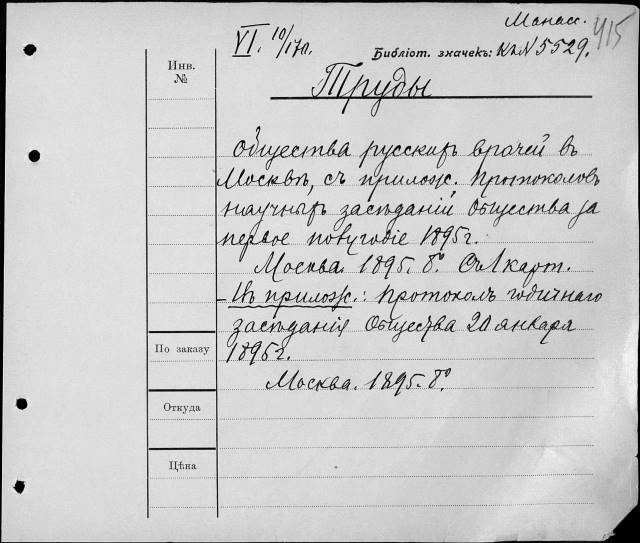 Манас.
415
VI. 10/170.
Библіот. значекъ: К2N5529.
Инв.
№
Труды
Общества русскихъ врачей въ
Москвѣ, съ прилож. Протоколовъ
научныхъ засѣданій Общества за
первое полугодіе 1895г.
Москва. 1895. 8º. Съ 1 карт.
– Въ прилож.: Протоколъ годичнаго
засѣданія Общества 20 января
1895г.
Москва. 1895. 8º.
По заказу
Откуда
Цѣна